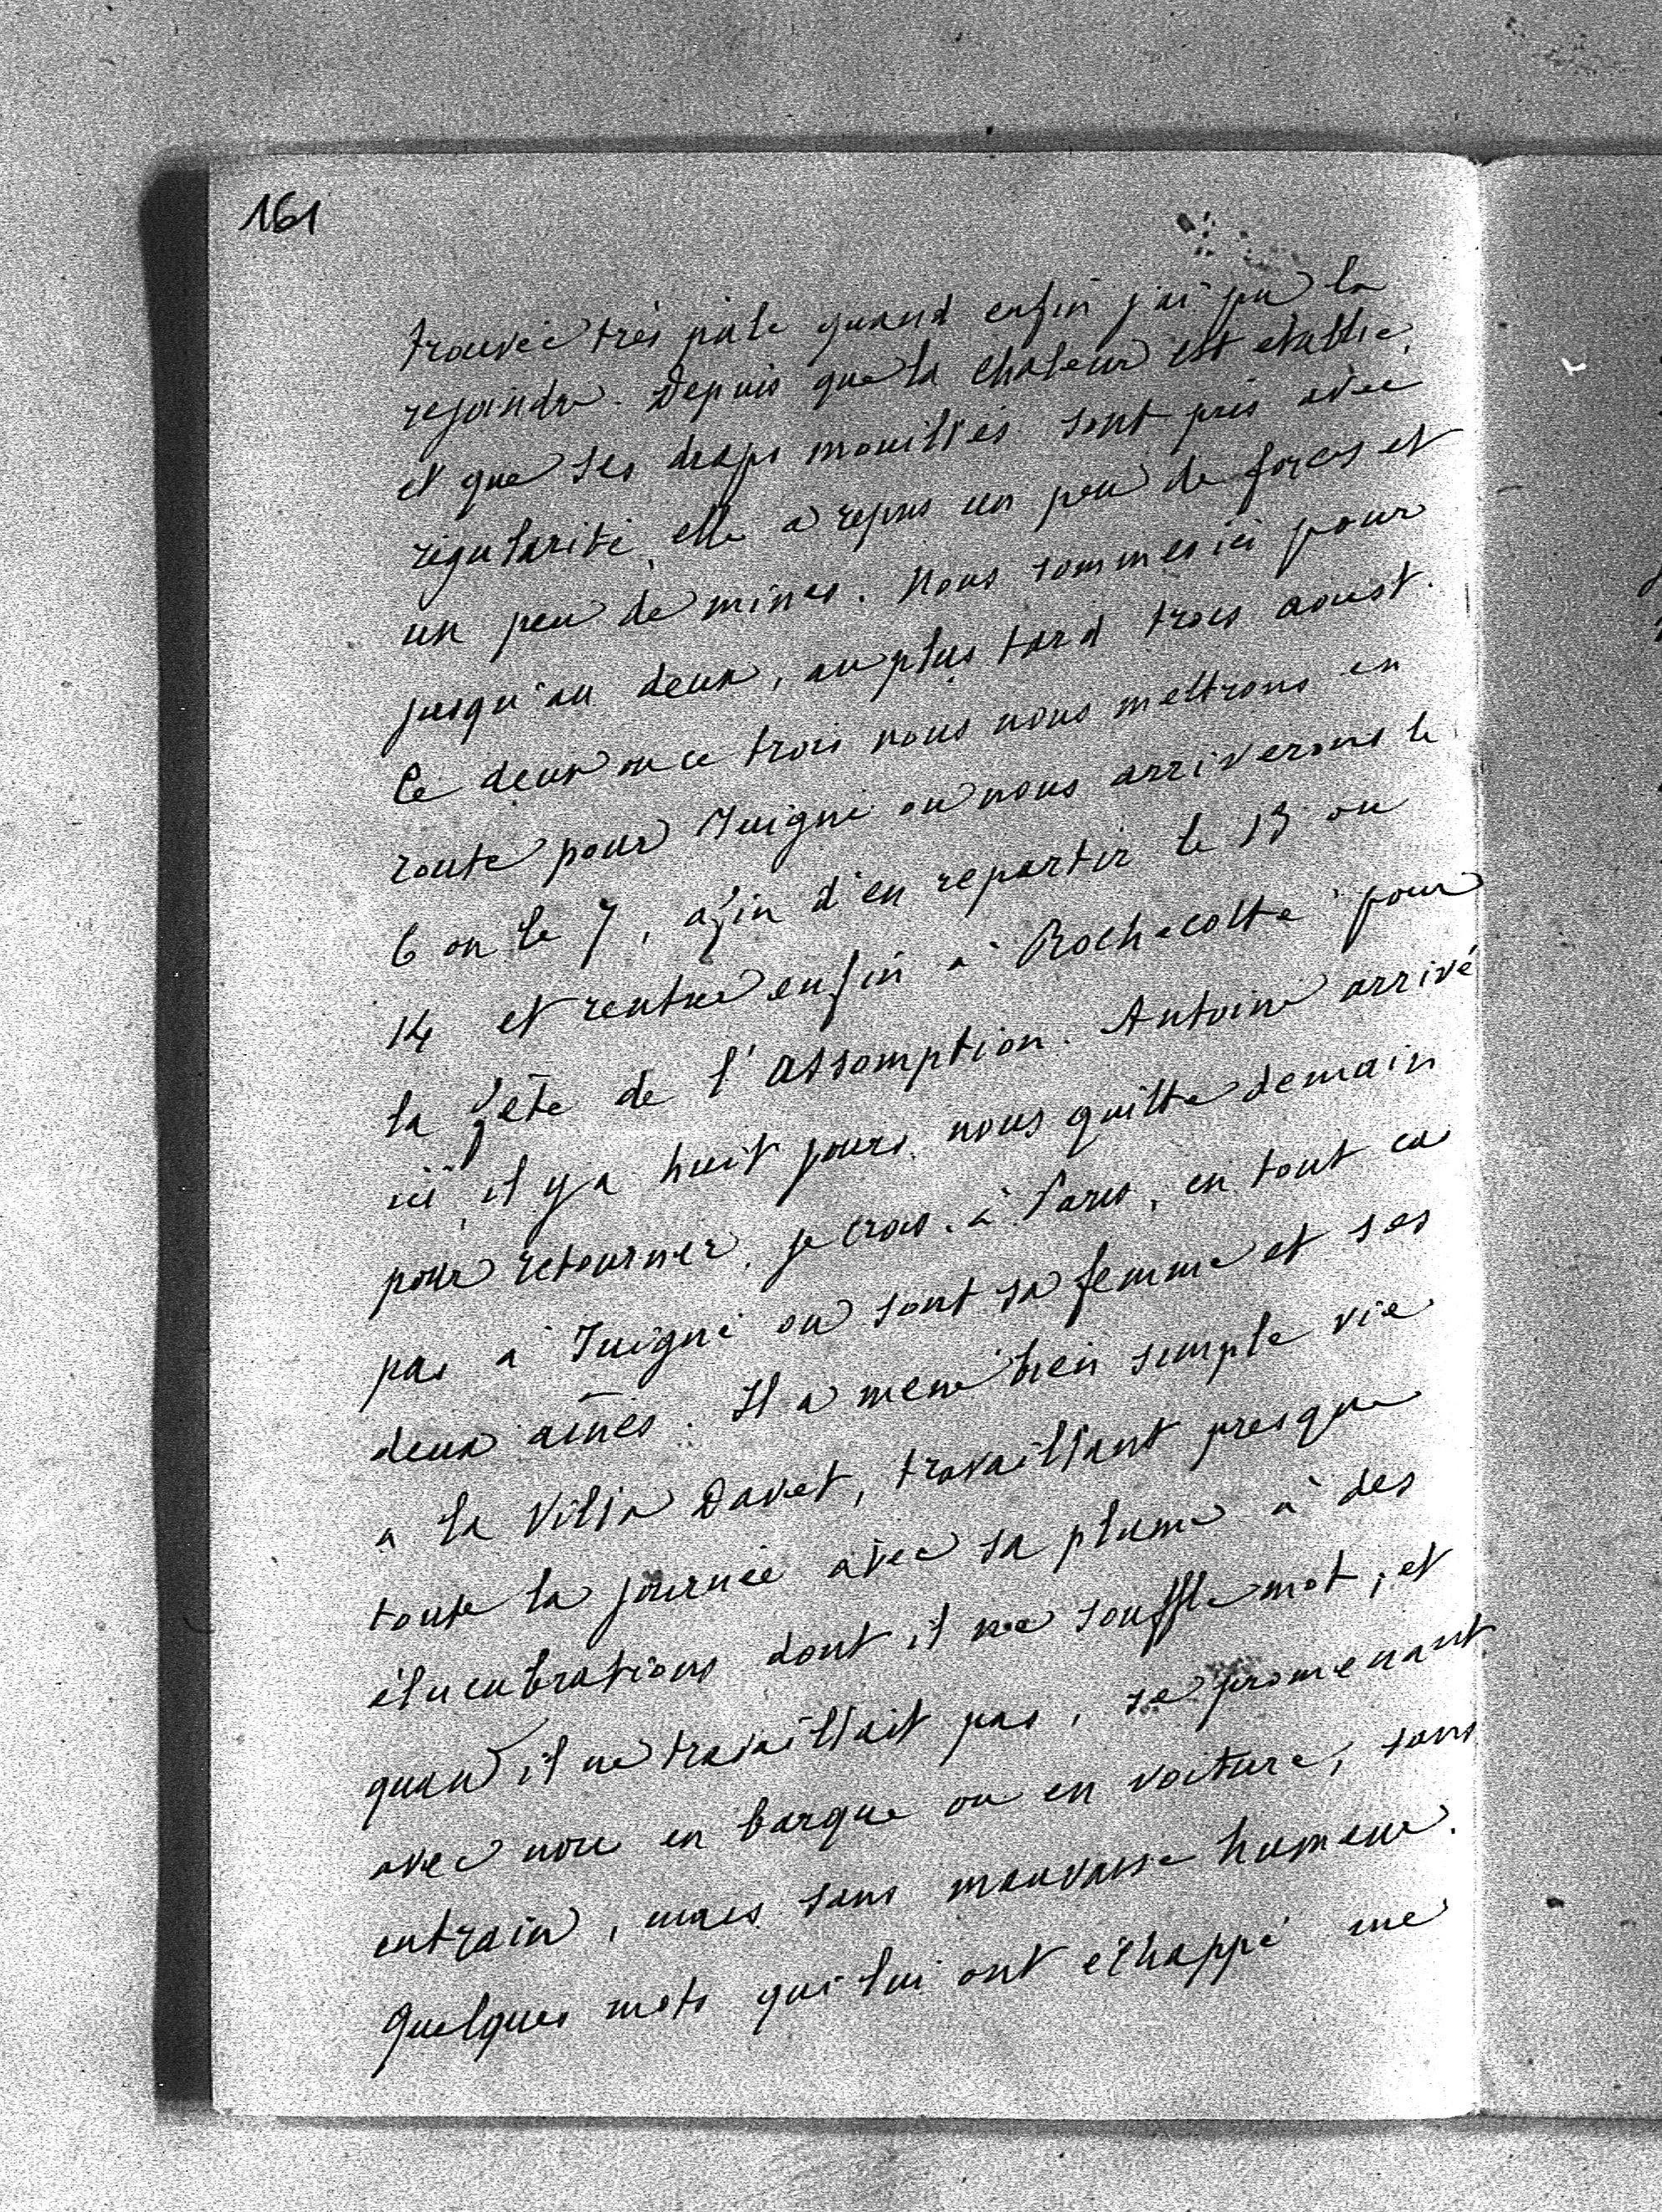 161
trouvée très pâle quand enfin j'ai pu la
rejoindre. Depuis que la chaleur est établie,
et que ses draps mouillés sont pris avec
régularité, elle a repris un peu de forces et
un peu de mines. Nous sommes ici pour
jusqu'au deux, au plus tard trois aoust.
Ce deux ou ce trois nous nous mettrons en
route pour Juigné ou nous arriverons le
6 ou le 7, afin d'en repartir le 13 ou
14 et rentrer enfin à Rochecotte pour
la fête de l'assomption. Antoine arrivé
ici, il y a huit jours, nous quitte demain
pour retourner, je crois, à Paris, en tout cas
pas à Juigné ou sont sa femme et ses
deux aînés. Il a mené bien simple vie
a la Villa Davet, travaillant presque
toute la journée avec sa plume à des
élucubrations dont il ne souffle mot, et
quand il ne travaillait pas, se promenant
avec nous en barque ou en voiture, sans
entrain, mais sans mauvaise humeur.
Quelques mots qui lui ont échappé me